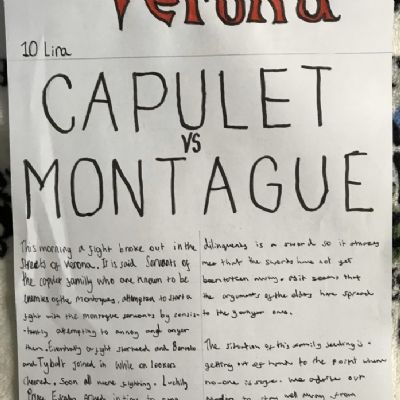 Verona
10 Lira
CAPULET
VS
MONTAGUE
This morning a fight broke out in the
streets of verona. It is said Servants
of the family who are known to be
enemies of the montagues, attempted to start a
fight with the montague servants by consis-
tantly attempting to annoy and anger
them. Eventually a fight started and Benvolio
and Tybalt joined in While on lookers
cheered, Soon all were fighting. Luckily
Prince arrived in time to
delinquents is a sword so it
that the swords have not yet
been seems that
the arguments of the have spread
to the younger one.
The situation of this family feuding is
getting out of hand to the point where
no-one is safe. We advise our
to stay well away from